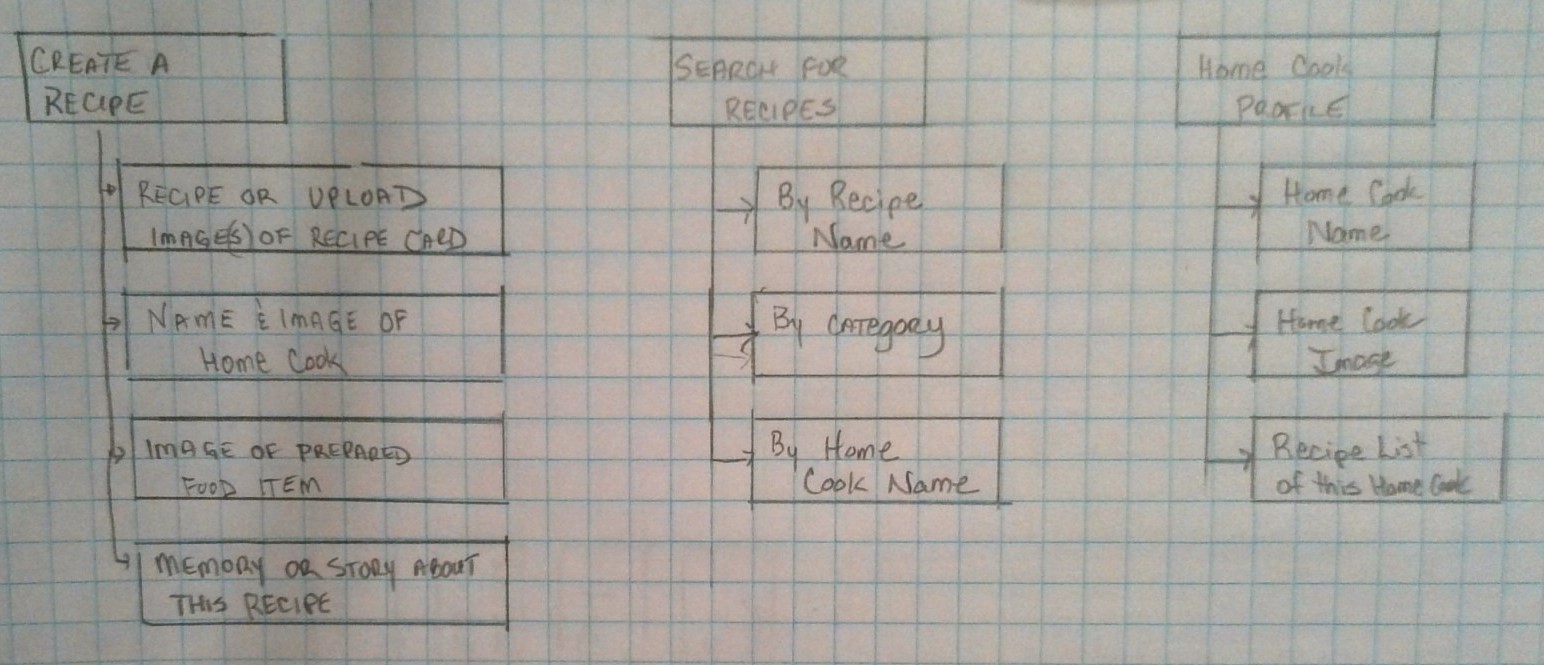 CREATE A
RECIPE
RECIPE OR UPLOAD
IMAGE(S) OF RECIPE CARD
NAME & IMAGE OF
Home Cook
IMAGE OF PREPARED
FOOD ITEM
MEMORY OR STORY ABOUT
THIS RECIPE
SEARCH FOR
RECIPES
By Recipe
Name
By CATEgory
By Home
Cook Name
Home Cook
PROFILE
Home Cook
Name
Home Cook
Image
Recipe List
of this Home Cook